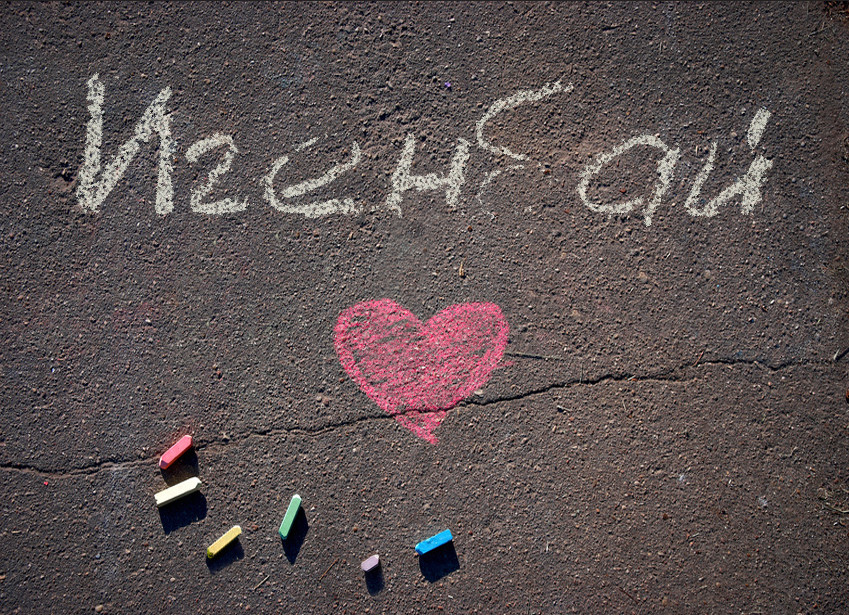 Игенбай